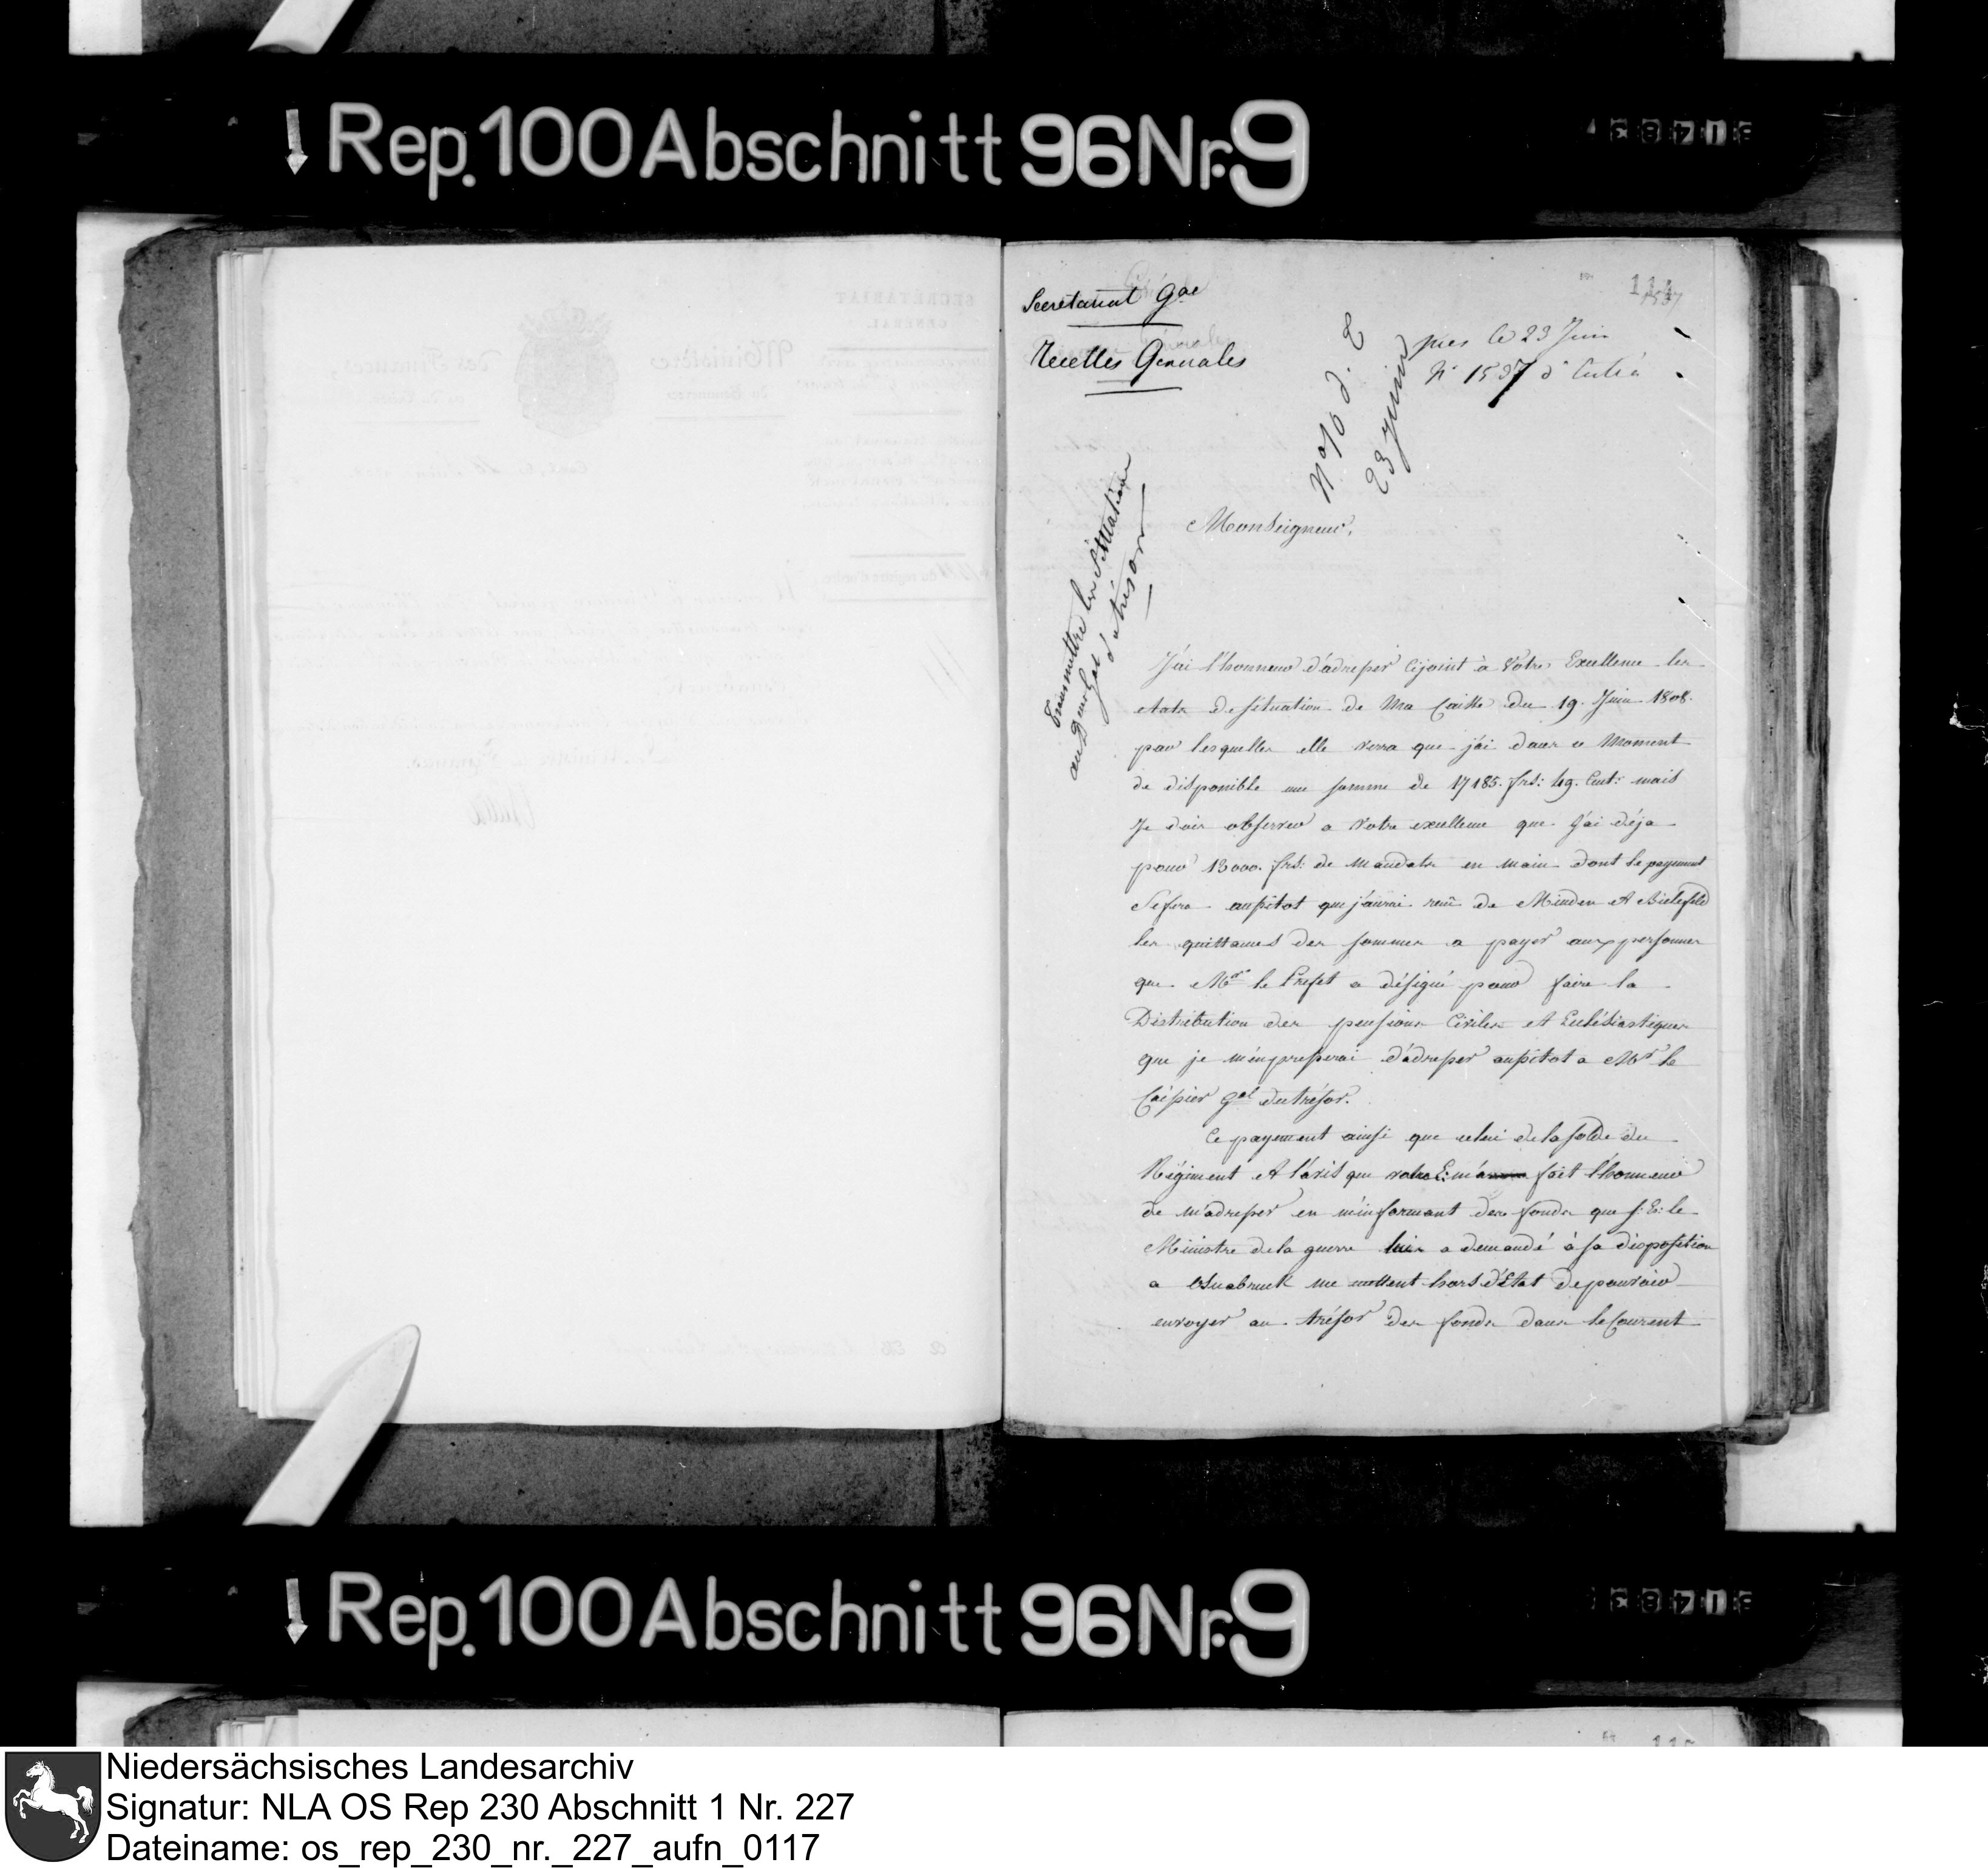 Rep. 100 Abschnitt 96 Nr. 9
Secretariat Gal
Recettes Generales
111
1597
pres le 23 Juin
N° 1597 d'Entrée
23 juin
Transmettre les Situations
au Dteur Gal du trésor
Monseigneur,
J'ai l'honneur d'adresser cijoint à Votre Excellence les
etats de situation de Ma Caisse du 19. Juin 1808.
par lesquelles elle verra que j'ai dans ce Moment
de disponible une somme de 17185. frs: 49. Cent: mais
Je dois observer a Votre excellence que j'ai déja
pour 13000. frs: de mandats en main dont le payement
Se fera aussitot que j'aurai recu de Minden et Bielefeld
les quittances des sommes a payer aux personnes
que Mr le Prefet a désigné pour faire la
Distribution des pensions Civiles et Eclésiastiques
que je m'empresserai d'adresser aussitot a Mr le
Caissier gal du trésor.
Ce payement ainsi que celui de la solde du
Régiment et l'avis que votre E: m'a fait l'honneur
de m'adresser en m'informant des fonds que S: E: le
Ministre de la guerre a demandé à sa disposition
a Osnabruck me mettent hors d'Etat de pouvoir
envoyer au trésor des fonds dans le Courent
Rep. 100 Abschnitt 96 Nr. 9
Niedersächsisches Landesarchiv
Signatur: NLA OS Rep 230 Abschnitt 1 Nr. 227
Dateiname: os_rep_230_nr._227_aufn_0117